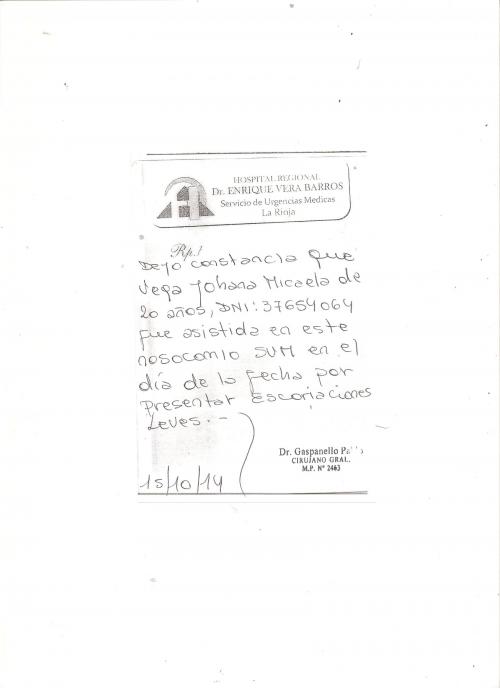 HOSPITAL REGIONAL
Dr. ENRIQUE VERA BARROS
Servicio de Urgencias Medicas
La Rioja
Rp.
Dejo constancia que
Vega Johana Micaela de
20 años, DNI: 37654064
fue asistida en este
nosocomio SUM en el
día de la fecha por
presentar Escoriaciones
Leves.-
Dr. Gaspanello
CIRUJANO GRAL.
M.P. Nº 2463
15/10/14